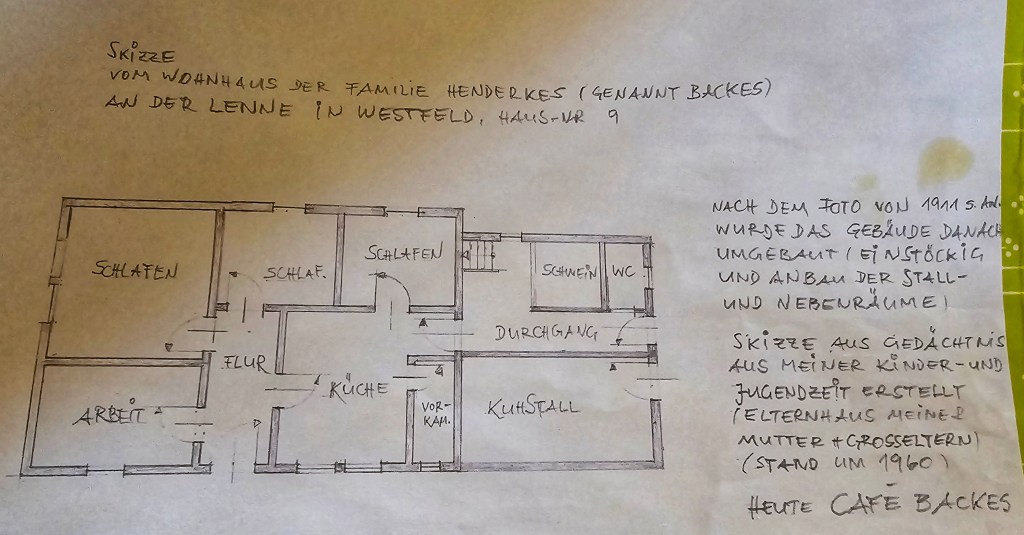 SKIZZE
VOM WOHNHAUS DER FAMILIE HENDERKES (GENANNT BACKES)
AN DER LENNE IN WESTFELD, HAUS-NR 9
NACH DEM FOTO VON 1911 S. AN.
WURDE DAS GEBÄUDE DANACH
UMGEBAUT (EINSTÖCKIG
UND ANBAU DER STALL-
UND NEBENRÄUME)
SCHLAFEN
SCHLAF.
SCHLAFEN
SCHWEIN
WC
DURCHGANG
FLUR
ARBEIT
KÜCHE
VOR-
KAM.
KUHSTALL
SKIZZE AUS GEDÄCHTNIS
AUS MEINER KINDER- UND
JUGENDZEIT ERSTELLT
(ELTERNHAUS MEINER
MUTTER + GROSSELTERN)
(STAND UM 1960)
HEUTE CAFÉ BACKES